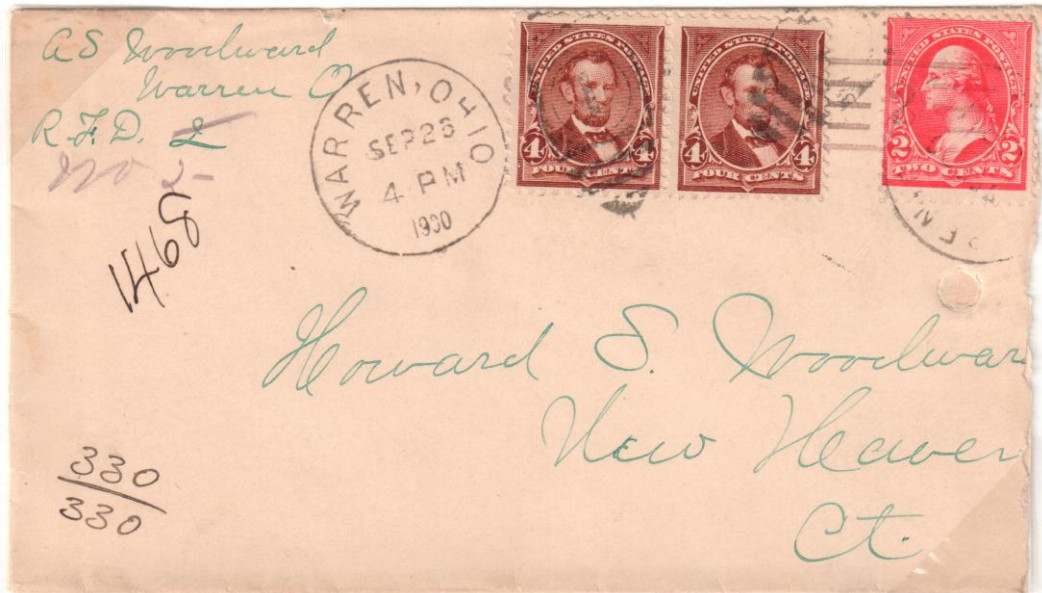 A S Woodward
Warren O
R. F. D. 2
No 2-
1468
WARREN, OHIO
SEP 26
4 - PM
1900
UNITED STATES POSTAGE
4 4
FOUR CENTS
UNITED STATES POSTAGE
4 4
FOUR CENTS
UNITED STATES POSTAGE
2 2
TWO CENTS
Howard S. Woodwar
New Haven
Ct.
330
330